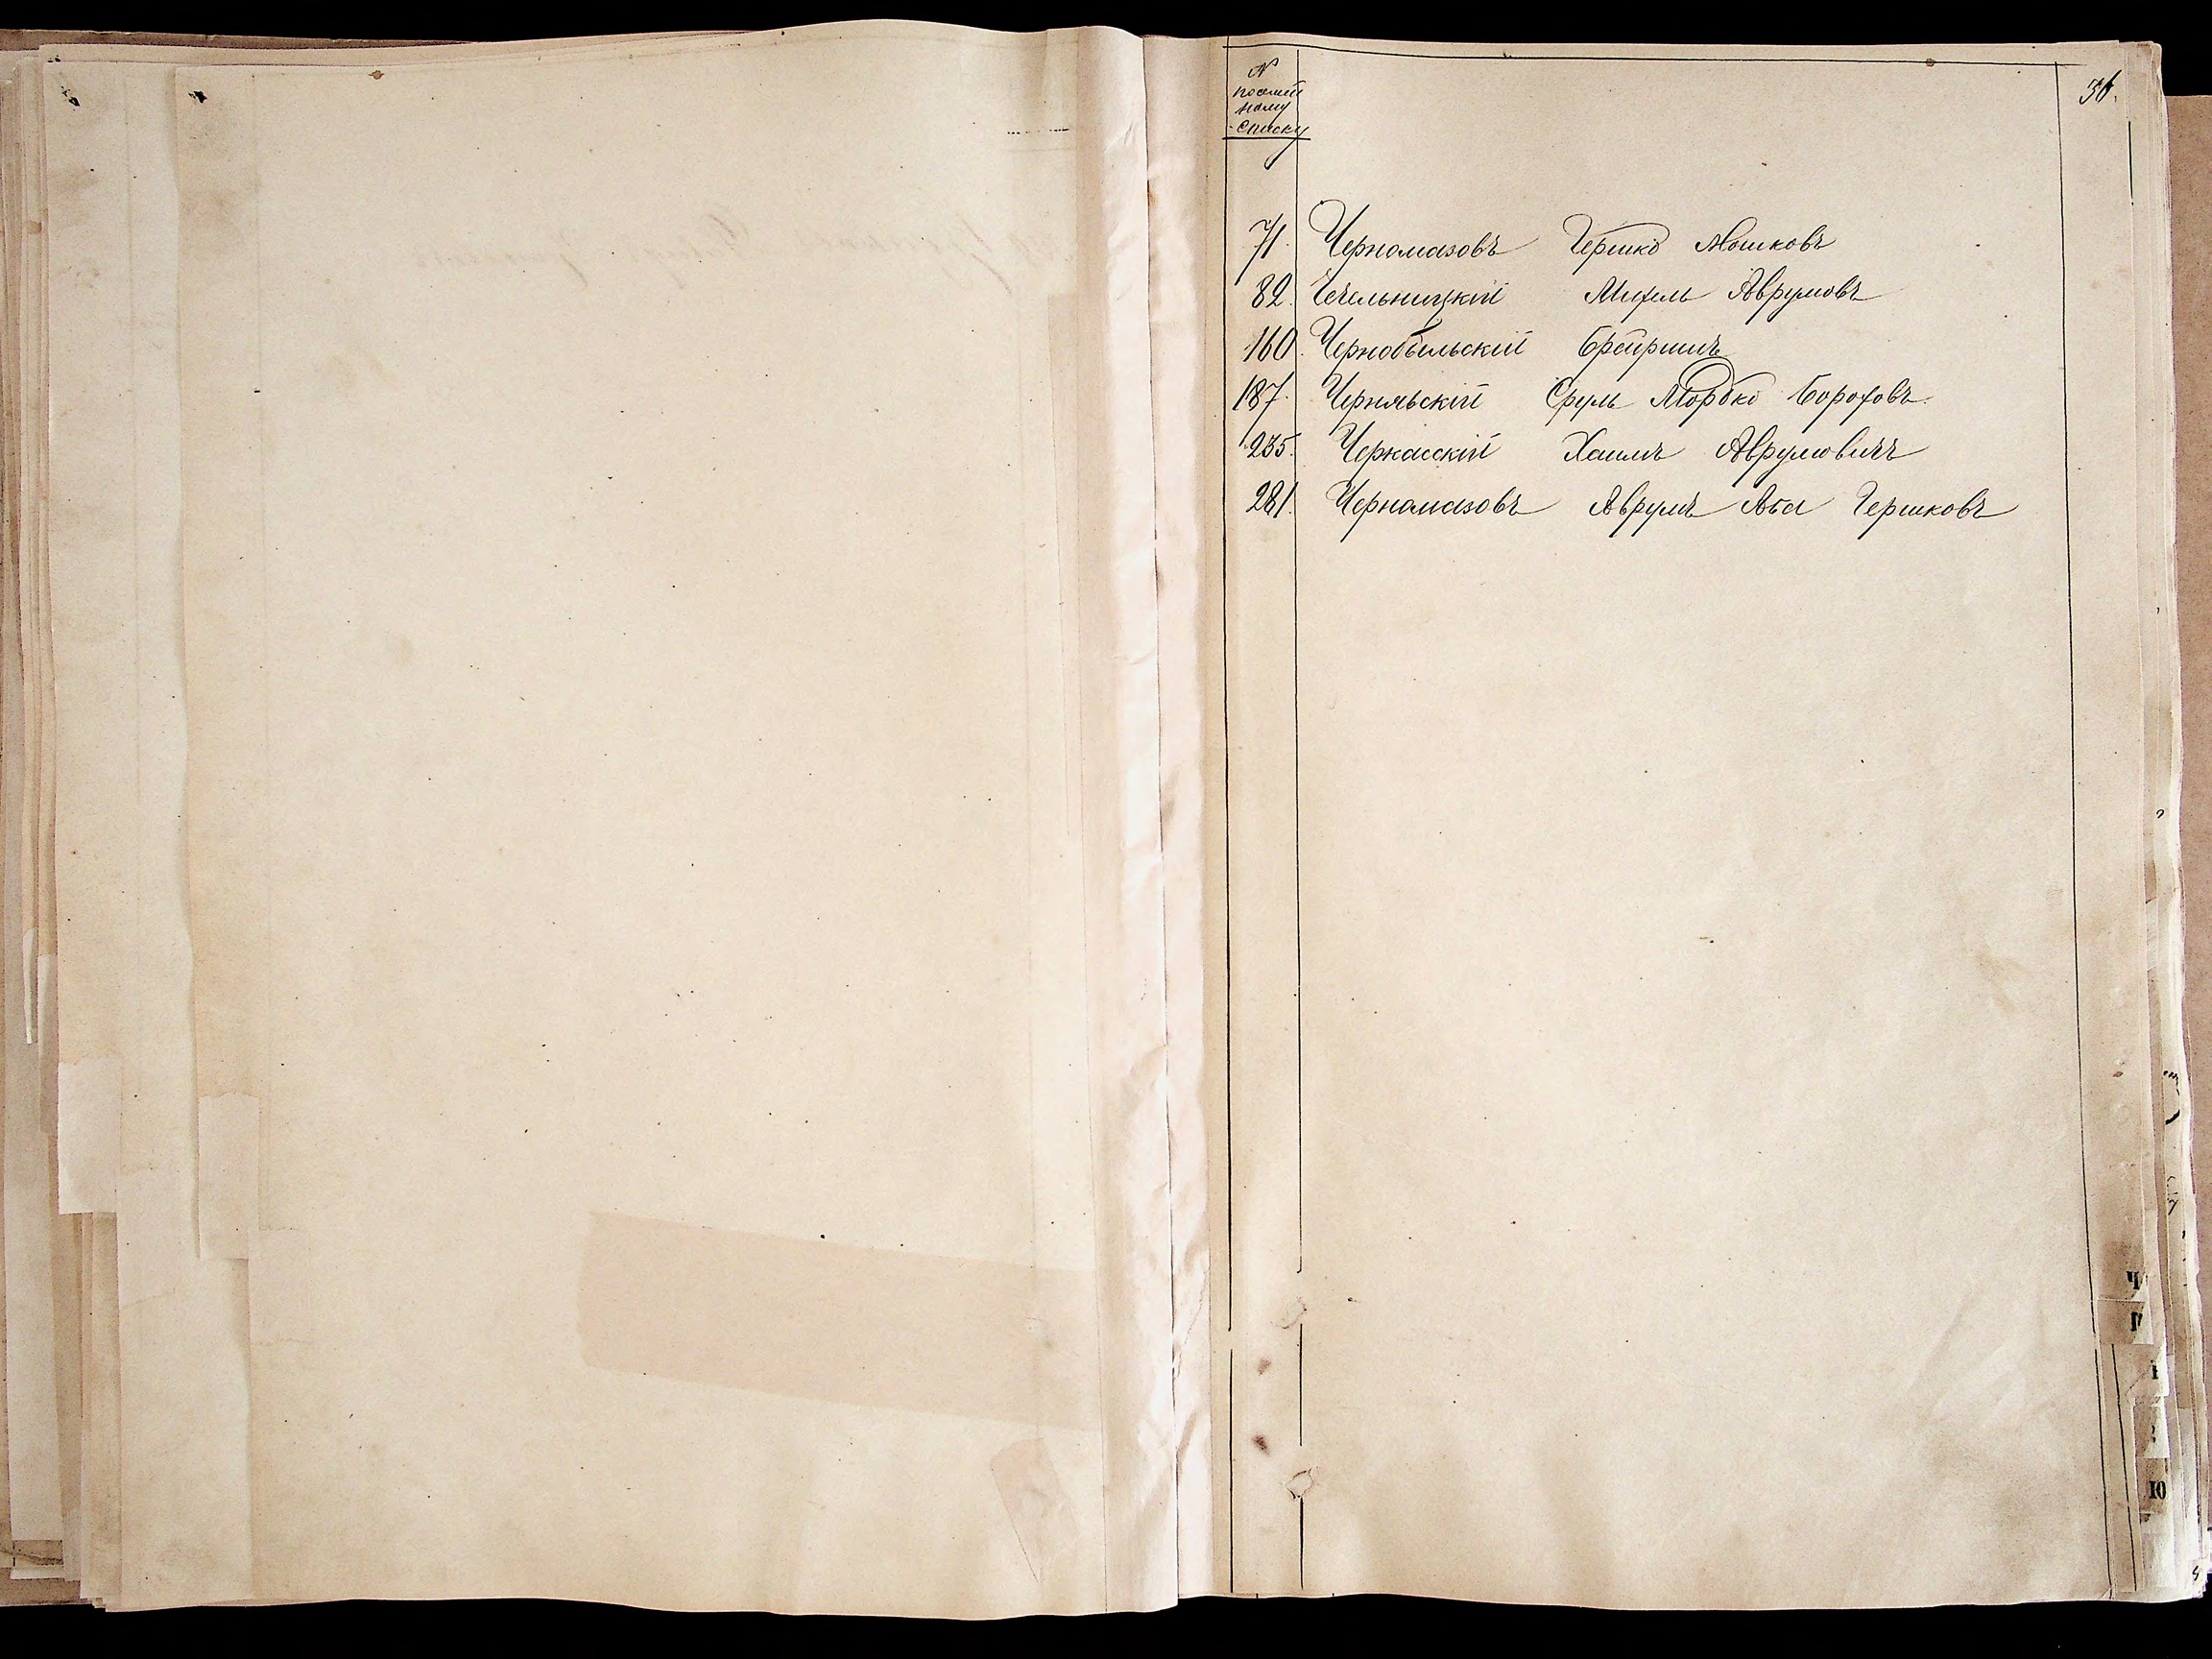 N
посемей
ному
списку
36.
71. Черномазовъ Гершко Мошковъ
82. Чечельницкій Михель Аврумовъ
160. Чернобыльскій
187. Чернявскій Сруль Мордко Боруховъ
235. Черкасскій Хаимъ Аврумовичъ
281. Черномазовъ Аврумъ Аба Гершковъ
Ч
Ю